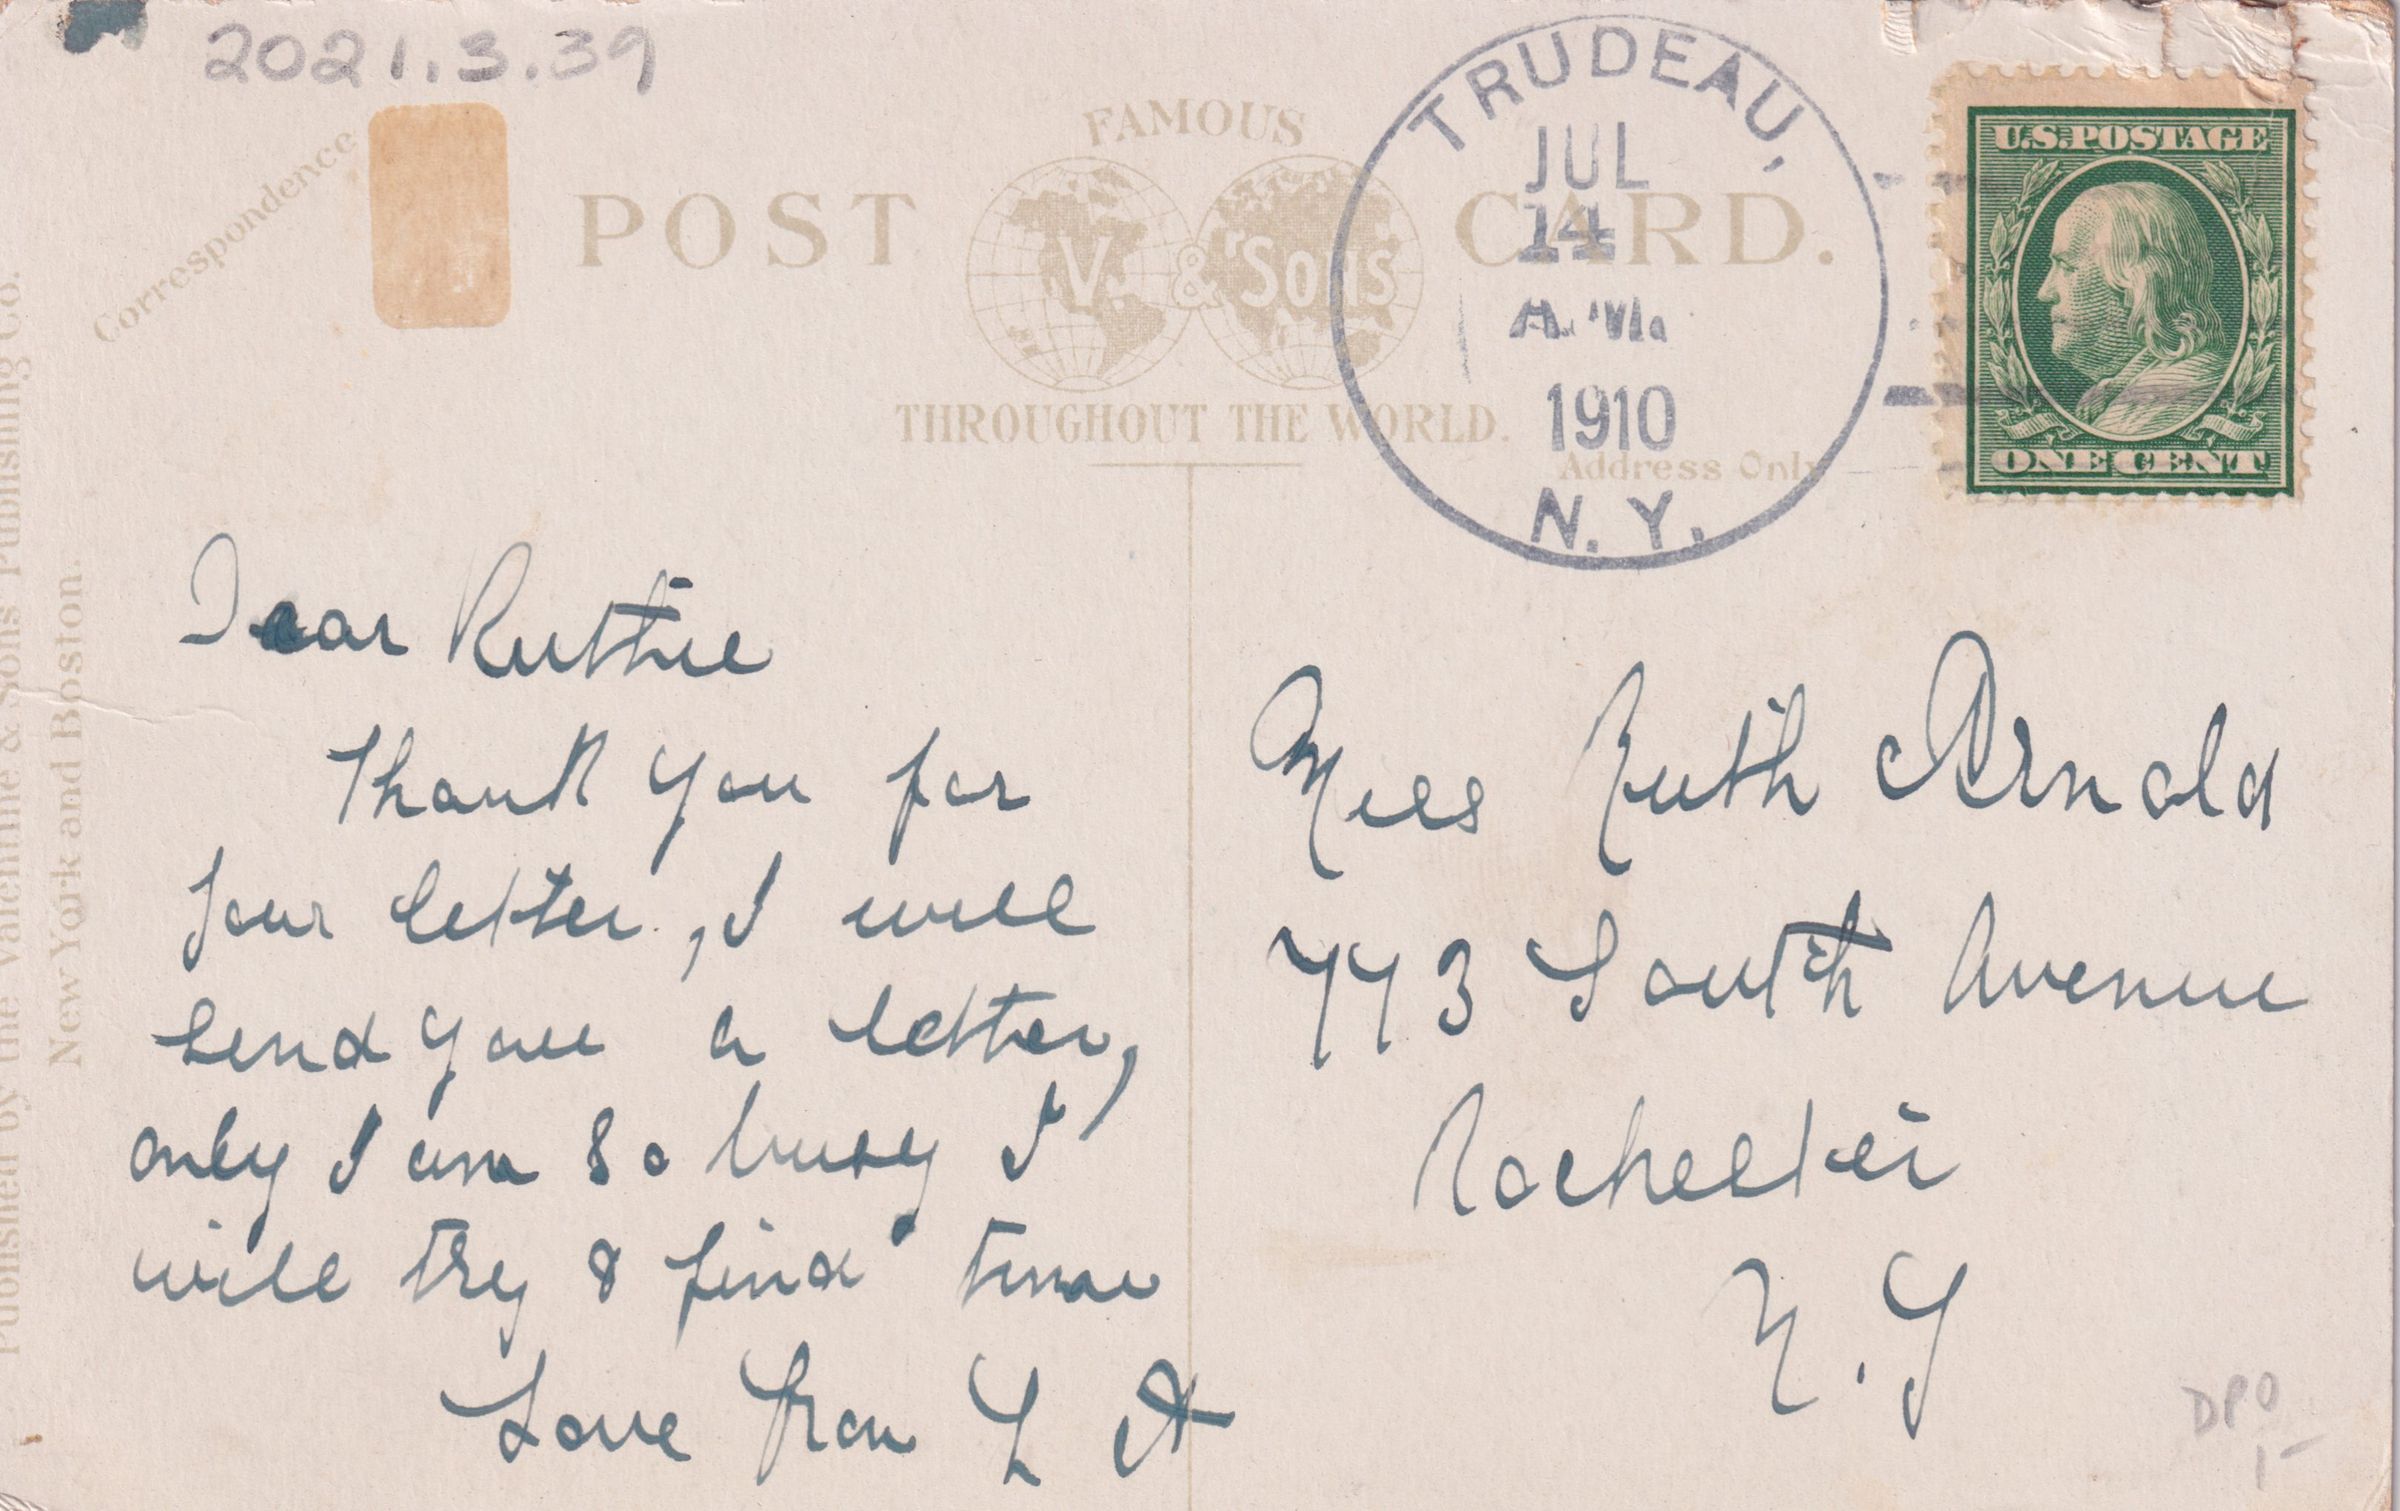 2021.3.39
Correspondence
FAMOUS
POST CARD.
V. & Sons
THROUGHOUT THE WORLD.
Address Only
TRUDEAU,
JUL
14
A.M.
1910
N. Y.
U.S. POSTAGE
ONE CENT
Published by the Valentine & Sons Publishing Co.
New York and Boston.
Dear Ruthie
Thank you for
your letter, I will
send you a letter,
only I am so busy I
will try & find time
Love from L A
Miss Ruth Arnold
773 South Avenue
Rochester
N.Y
DPO
1-